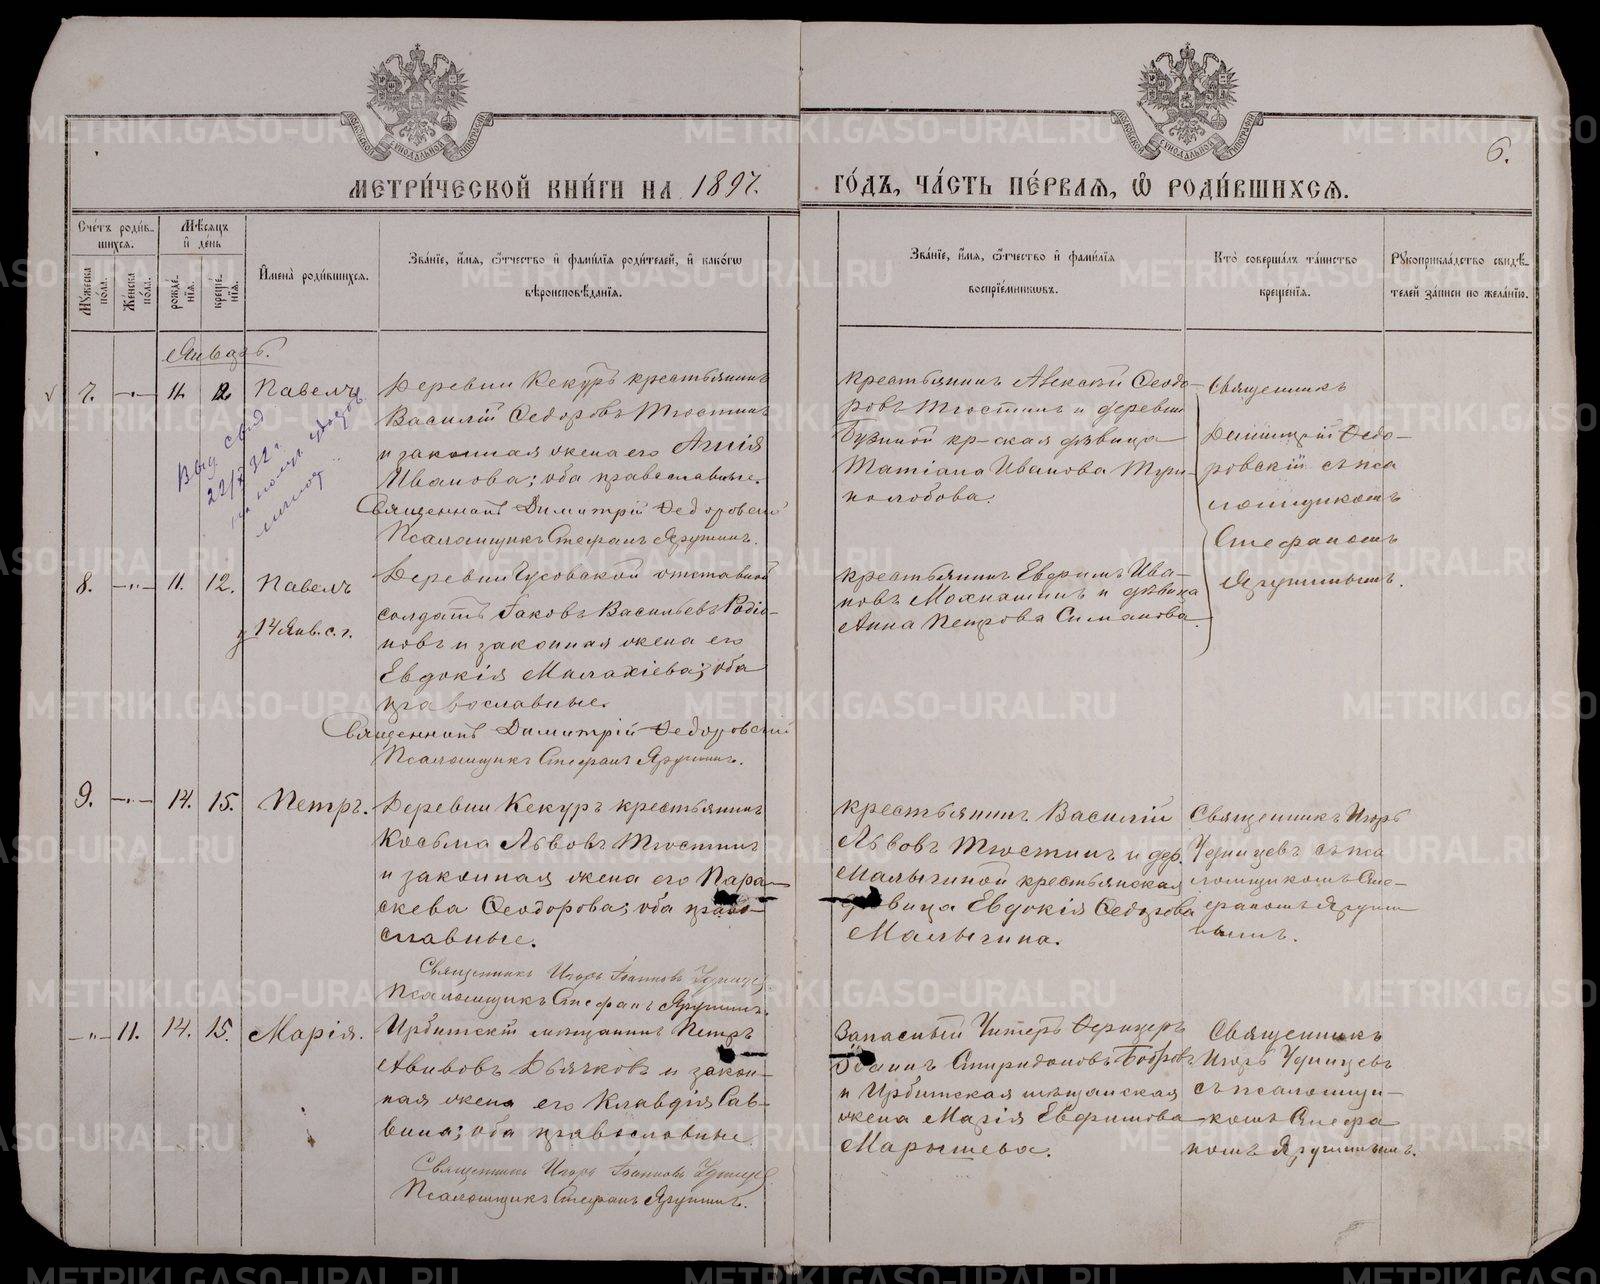 МЕТРИ́ЧЕСКОЙ КНИ́ГИ НА 1897.
ГО́ДЪ, ЧА́СТЬ ПЕ́РВАѦ, Ѡ҆ РОДИ́ВШИХСѦ.
6.
Сче́тъ роди́в-
шихся.
Мѣсяцъ
и҆ де́нь
Мꙋжеска по́ла.
Же́нска по́ла.
рожде́-
нїѧ.
креще́-
нїѧ.
И҆мена̀ роди́вшихсѧ.
Зва́нїе, и҆́мѧ, ѻ҆́тчество и҆ фами́лїѧ роди́телей, и҆ како́гѡ
вѣроисповѣ́данїѧ.
Зва́нїе, и҆́мѧ, ѻ҆́тчество и҆ фами́лїѧ
воспрїе́мникѡвъ.
Кто̀ соверша́лъ та́инство
креще́нїѧ.
Рꙋкоприкла́дство свидѣ́-
телей за́писи по жела́нїю.
Январь.
7. —"— 11. 12. Павелъ
Выд свид
22/X 32 г.
Деревни Кекуръ крестьянинъ
Василій Ѳедоровъ Тюстинъ
и законная жена его Аннія
Иванова; оба православные.
Священникъ Димитрій Ѳедоровскій
Псаломщикъ Стефанъ Ягутинъ.
крестьянинъ Алексѣй Ѳеодо-
ровъ Тюстинъ и деревни
Бузиной кр-ская дѣвица
Татіана Иванова
Священникъ
Димитрій Ѳедо-
ровскій съ пса
ломщикомъ
Стефаномъ
8. —"— 11. 12. Павелъ
у 14 Янв. с. г.
Деревни отставной
солдатъ Іаковъ Васильевъ Родіо-
новъ и законная жена его
Евдокія Малахіева; оба
православные.
Священникъ Димитрій Ѳедоровскій
Псаломщикъ Стефанъ
крестьянинъ Ефримъ Ива-
новъ Мохнашинъ и дѣвица
Анна Петрова Симанова.
9. —"— 14. 15. Петръ.
Деревни Кекуръ крестьянинъ
Косьма Львовъ Тюстинъ
и законная жена его Пара-
скева Ѳеодорова; оба право-
славные.
Священникъ Игорь Іоанновъ Удинцевъ
Псаломщикъ Стефанъ
крестьянинъ Василій
Львовъ Тюстинъ и дер.
Малыгиной крестьянская
дѣвица Евдокія Ѳедорова
Малыгина.
Священникъ Игорь
Удинцевъ съ пса
ломщикомъ Сте-
фаномъ
—"— 11. 14. 15. Марія.
Ирбитскій мѣщанинъ Петръ
Авивовъ Дьячковъ и закон-
ная жена его Клавдія Сав-
вина; оба православные.
Священникъ Игорь Іоанновъ Удинцевъ
Псаломщикъ Стефанъ
Запасный Унтеръ Офицеръ
Іоаннъ Спиридоновъ Бобровъ
и Ирбитская мѣщанская
жена Марія Ефимова
Марышева.
Священникъ
Игорь Удинцевъ
съ псаломщи-
комъ Стефа
номъ